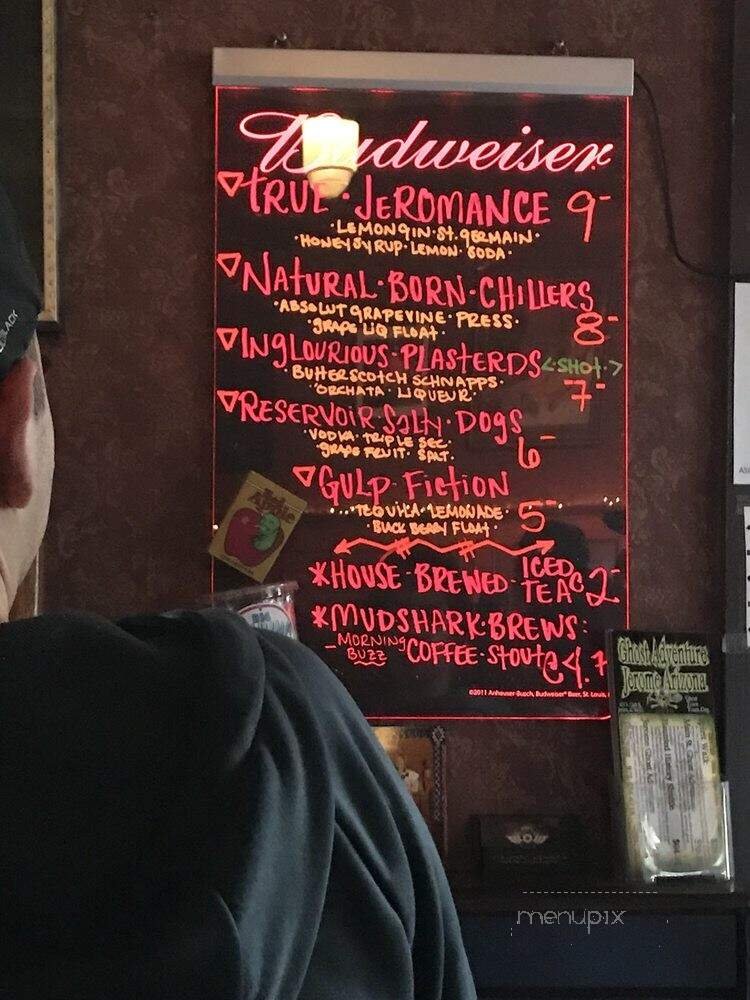 Budweiser
TRUE · JEROMANCE 9-
· LEMON GIN · ST. GERMAIN ·
· HONEY SYRUP · LEMON · SODA ·
NATURAL · BORN · CHILLERS
· ABSOLUT GRAPEVINE · PRESS · 8-
· GRAPE LIQ FLOAT ·
INGLOURIOUS · PLASTERDS <SHOT>
BUTTERSCOTCH SCHNAPPS · 7-
· ORCHATA · LIQUEUR ·
RESERVOIR · SALTY · DOGS
· VODKA · TRIPLE SEC · 6-
GRAPE FRUIT · SALT ·
GULP · FICTION
· TEQUILA · LEMONADE · 5-
· BLACK BERRY FLOAT ·
*HOUSE · BREWED · ICED TEA @ 2-
*MUDSHARK · BREWS:
- MORNING BUZZ COFFEE · STOUT @ 4.7
©2011 Anheuser-Busch, Budweiser® Beer, St. Louis,
Ghost Adventure
Jerome Arizona
menupix